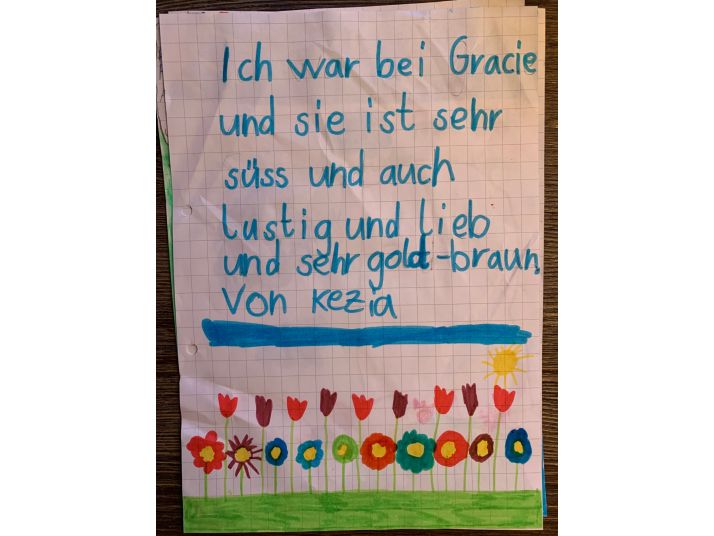 Ich war bei Gracie
und sie ist sehr
süss und auch
lustig und lieb
und sehr gold-braun,
Von Kezia